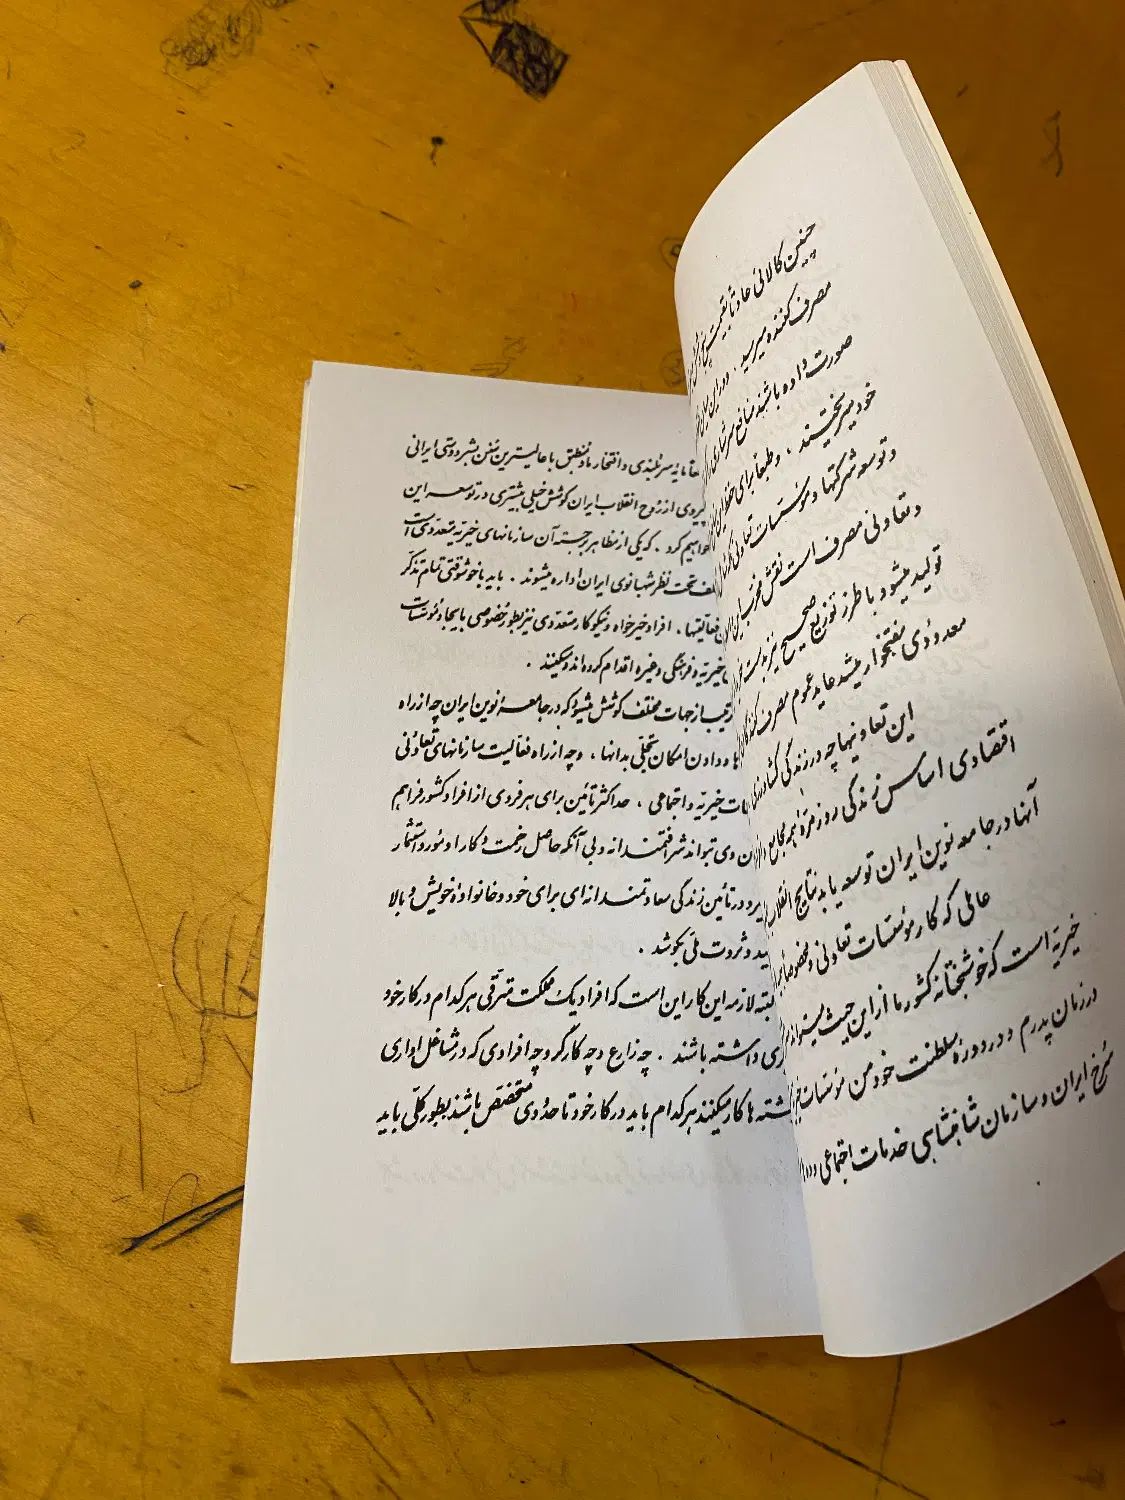 چنین کالائی عادتاً بقیمت
مصرف کننده میرسید . و در این میان
صورت داده باشند منافع سرشاری
خود میبخشیدند ، وطبعاً برای حفظ این
و توسعه شرکتها و مؤسسات تعاونی
و تعاونی مصرف است نقش مخرب این
تولید میشود با طرز توزیع صحیح نیز بدست
معدودی مفتخوار میشد عاید عموم مصرف کنندگان
این تعاونیها چه در زندگی کشاورزی
اقتصادی اساس زندگی روزمره اهم مجامع
آنها در جامعه نوین ایران توسعه یابد نتایج انقلاب
عاملی که کار مؤسسات تعاونی و مخصوصاً
خیریه است که خوشبختانه کشور ما از این حیث میتواند
در زمان پدرم و در دوره سلطنت خود من مؤسسات
سرخ ایران و سازمان شاهنشاهی خدمات اجتماعی
مایه سربلندی و افتخار ما و منطبق با عالیترین سنن بشردوستی ایرانی
پیروی از روح انقلاب ایران کوشش خیلی بیشتری در توسعه این
خواهیم کرد . که یکی از مظاهر برجسته آن سازمانهای خیریه متعددی است
تحت نظر شهبانوی ایران اداره میشوند . باید با خوشوقتی تمام تذکر
فعالیتها . افراد خیرخواه و نیکوکار متعددی نیز بطور خصوصی بایجاد مؤسسات
خیریه و فرهنگی و غیره اقدام کرده اند و میکنند .
از جهات مختلف کوشش میشود که در جامعه نوین ایران چه از راه
و دادن امکان تجلی بدانها ، و چه از راه فعالیت سازمانهای تعاونی
خیریه و اجتماعی ، حداکثر تأمین برای هر فردی از افراد کشور فراهم
وی بتواند شرافتمندانه و بی آنکه حاصل زحمت و کار او مورد استثمار
در تأمین زندگی سعادتمندانه ای برای خود و خانواده خویش و بالا
و ثروت ملی بکوشد .
لازمه این کار این است که افراد یک مملکت مترقی هر کدام در کار خود
داشته باشند . چه زارع و چه کارگر و چه افرادی که در مشاغل اداری
کار میکنند هر کدام باید در کار خود تا حدودی متخصص باشند بطور کلی باید